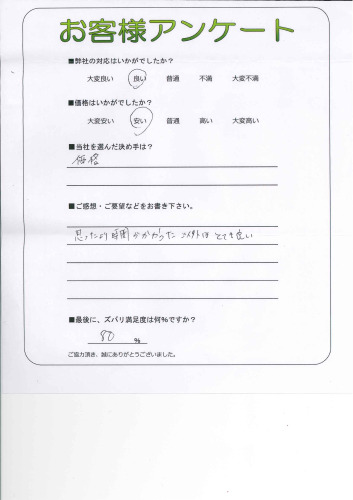 お客様アンケート
■弊社の対応はいかがでしたか？
大変良い 良い 普通 不満 大変不満
■価格はいかがでしたか？
大変安い 安い 普通 高い 大変高い
■当社を選んだ決め手は？
価格
■ご感想・ご要望などをお書き下さい。
思ったより時間がかかった コメント以外はとても良い
■最後に、ズバリ満足度は何％ですか？
80 ％
ご協力頂き、誠にありがとうございました。